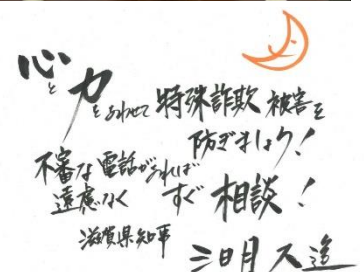 心と力とあわせて特殊詐欺被害を
防ぎましょう!
不審な電話があれば
遠慮なく すぐ 相談!
滋賀県知事
三日月大造